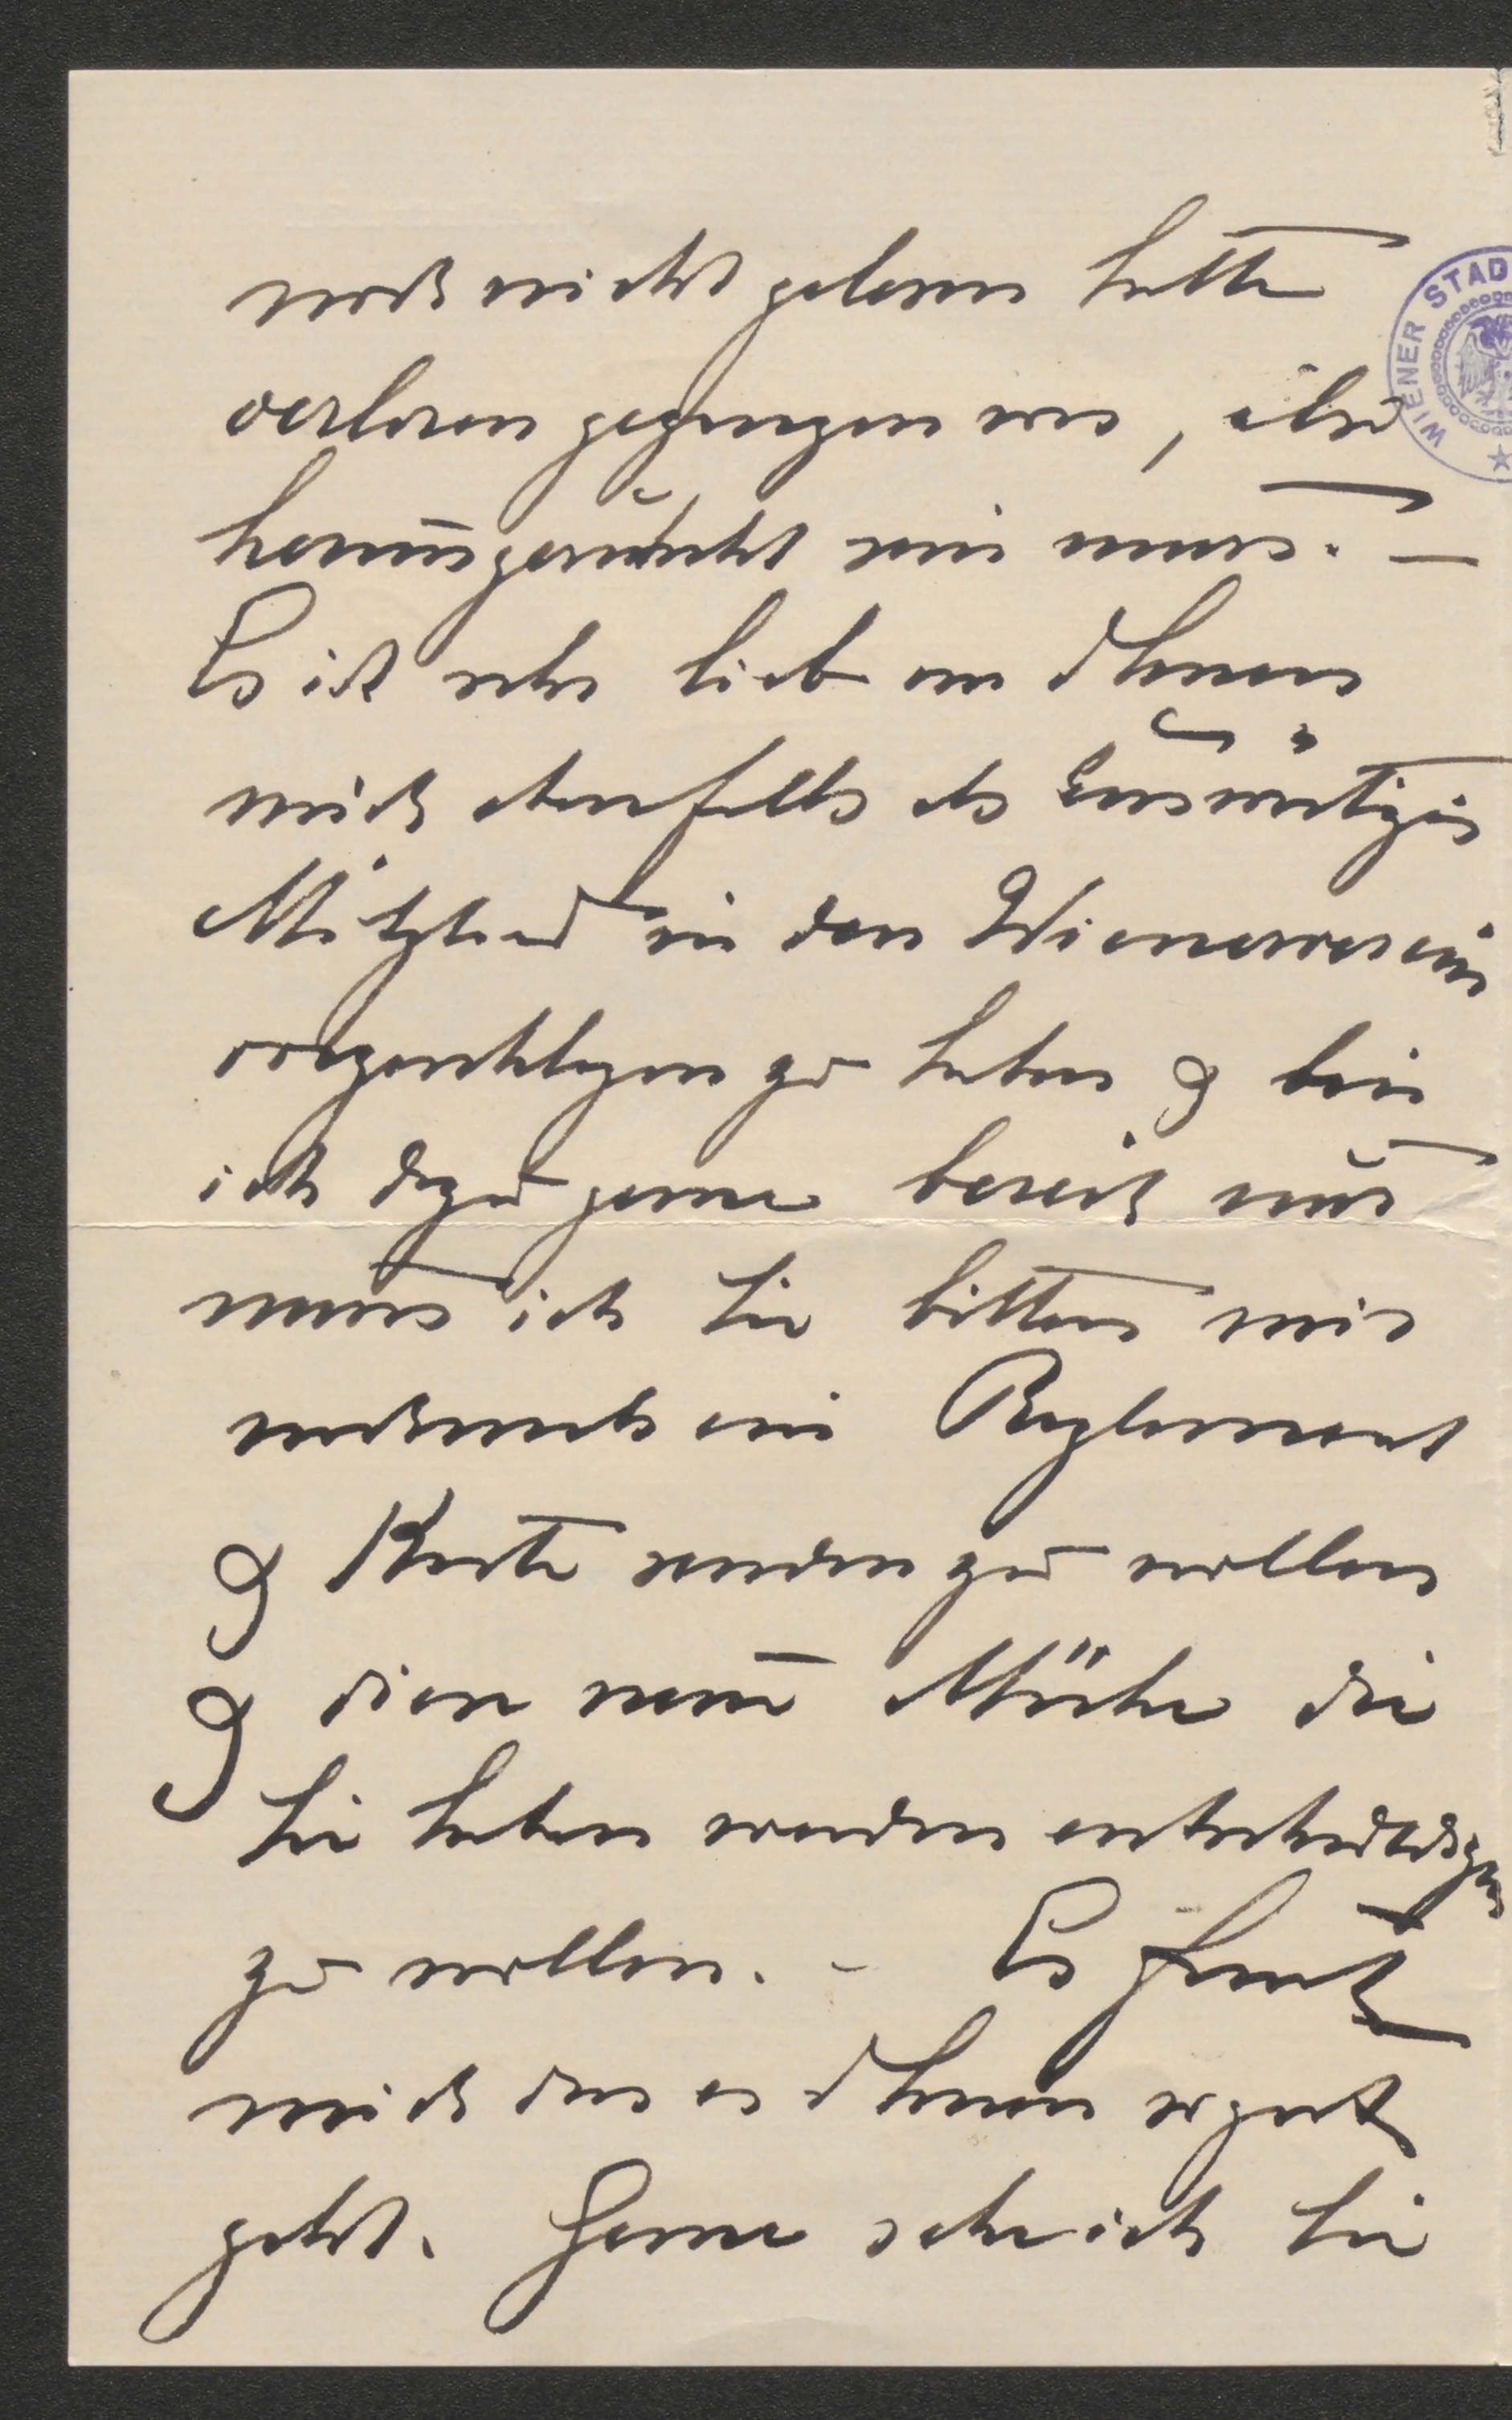 noch nicht gelesen hatte
verloren gegangen war, also
herausgerückt sein muss. –
Es ist sehr lieb von Ihnen
mich ebenfalls als auswärtiges
Mitglied in den Wienerverein
vorgeschlagen zu haben & bin
ich dazu gerne bereit nur
muss ich Sie bitten mir
nochmals ein Reglement
& Karte senden zu wollen
& diese neue Mühe die
Sie haben werden entschuldigen
zu wollen. – Es freut
mich dass es Ihnen so gut
geht. Gerne sehe ich Sie
WIENER STAD